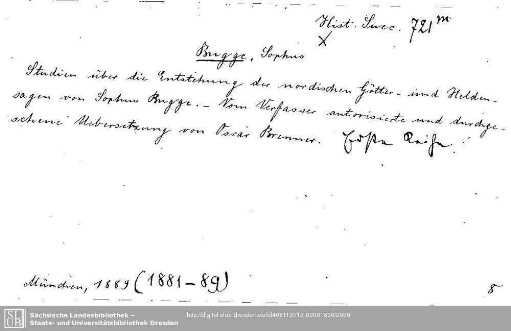 Hist. Suec. 721m
X
Bugge, Sophus
Studien über die Entstehung der nordischen Götter- und Helden-
sagen von Sophus Bugge. - Vom Verfasser autorisierte und durchge-
sehene Uebersetzung von Oscar Brenner. Erste Reihe.
München, 1889 (1881-89)
8
Sächsische Landesbibliothek -
Staats- und Universitätsbibliothek Dresden